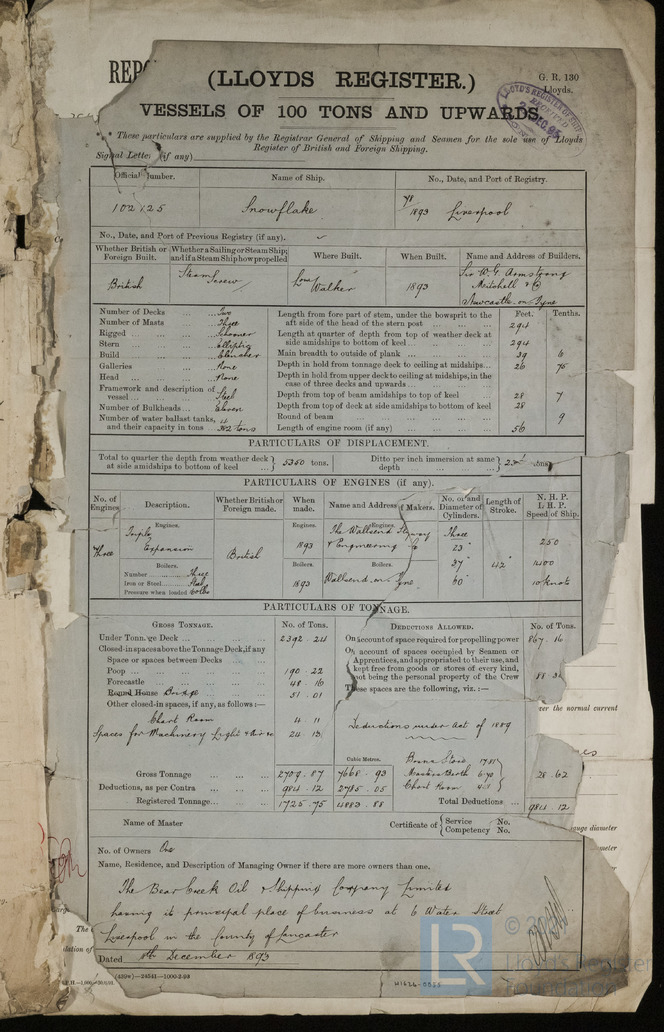 (LLOYDS REGISTER.)
G. R. 130
Lloyds.
VESSELS OF 100 TONS AND UPWARDS.
These particulars are supplied by the Registrar General of Shipping and Seamen for the sole use of Lloyds
Register of British and Foreign Shipping.
Signal Letter (if any)
Official Number. Name of Ship. No., Date, and Port of Registry.
102125 Snowflake 1893 Liverpool
No., Date, and Port of Previous Registry (if any).
Whether British or Foreign Built. Whether a Sailing or Steam Ship; and if a Steam Ship how propelled Where Built. When Built. Name and Address of Builders.
British Steam Screw Walker 1893 Sir W G Armstrong
Mitchell & Co
Newcastle on Tyne
Feet. Tenths.
Number of Decks ... Two Length from fore part of stem, under the bowsprit to the aft side of the head of the stern post 294
Number of Masts ... Three
Rigged ... Schooner Length at quarter of depth from top of weather deck at side amidships to bottom of keel 294
Stern ... Elliptic
Build ... Clencher Main breadth to outside of plank 39 6
Galleries ... None Depth in hold from tonnage deck to ceiling at midships 26 75
Head ... None Depth in hold from upper deck to ceiling at midships, in the case of three decks and upwards
Framework and description of vessel ... Steel Depth from top of beam amidships to top of keel 28 7
Number of Bulkheads ... Eleven Depth from top of deck at side amidships to bottom of keel 28
Number of water ballast tanks, and their capacity in tons Round of beam 9
Length of engine room (if any) 56
PARTICULARS OF DISPLACEMENT.
Total to quarter the depth from weather deck at side amidships to bottom of keel } 5350 tons. Ditto per inch immersion at same depth } tons
PARTICULARS OF ENGINES (if any).
No. of Engines Description. Whether British or Foreign made. When made. Name and Address of Makers. No. of and Diameter of Cylinders. Length of Stroke. N. H. P. I. H. P. Speed of Ship.
Engines. Engines. Engines.
Three Triple Expansion British 1893 The Wallsend Slipway & Engineering Co Three 23" 37 60 42" 250 1400 10 knots
Boilers. Boilers. Boilers.
Number Three 1893 Wallsend on Tyne
Iron or Steel Steel
Pressure when loaded
PARTICULARS OF TONNAGE.
GROSS TONNAGE. No. of Tons. DEDUCTIONS ALLOWED. No. of Tons.
Under Tonnage Deck 2392.24 On account of space required for propelling power 867.16
Closed-in spaces above the Tonnage Deck, if any On account of spaces occupied by Seamen or
Space or spaces between Decks Apprentices, and appropriated to their use, and
Poop 190.22 kept free from goods or stores of every kind,
Forecastle 48.16 not being the personal property of the Crew
Round House Bridge 51.01 These spaces are the following, viz.:—
Other closed-in spaces, if any, as follows:—
Chart Room 4.11 Deductions under Act of 1889
Spaces for Machinery Light & Air 24.13
Cubic Metres.
Gross Tonnage 2709.87 7668.93 Masters Berth 28.62
Deductions, as per Contra 984.12 2785.05 Chart Room
Registered Tonnage 1725.75 4883.88 Total Deductions 984.12
Name of Master Certificate of { Service No.
Competency No.
No. of Owners One
Name, Residence, and Description of Managing Owner if there are more owners than one.
The Bear Creek Oil & Shipping Company Limited
having its principal place of business at 6 Water Street
Liverpool in the County of Lancaster
Dated 8th December 1893
LR
Lloyd's Register
Foundation